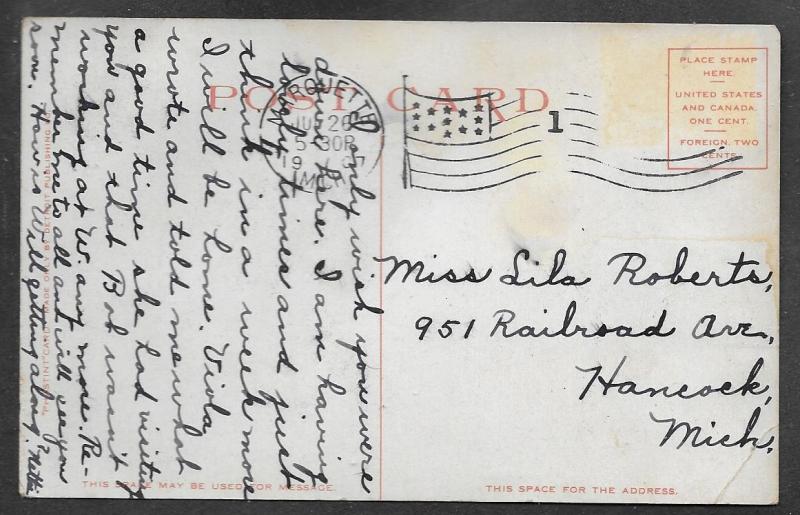 POST CARD
PLACE STAMP
HERE.
UNITED STATES
AND CANADA.
ONE CENT.
FOREIGN, TWO
CENTS.
5-30P
MICH
1
I only wish you were
down here. I am having
lovely times and just
think in a week more
I will be home. Viola
wrote and told me what
a good time she had visiting
you and that Bob wasn't
working at W. any more. Re-
member me to all and will see you
soon. How is Will getting along?
Miss Lila Roberts,
951 Railroad Ave.,
Hancock,
Mich.
"PHOSTINT" CARD MADE ONLY BY DETROIT PUBLISHING
THIS SPACE MAY BE USED FOR MESSAGE.
THIS SPACE FOR THE ADDRESS.